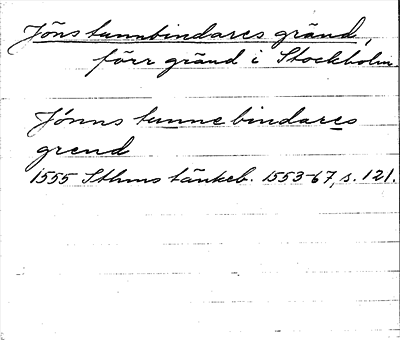 Jöns tunnbindares gränd,
förr gränd i Stockholm
Jönns tunne bindares
grend
1555 Sthms tänkeb. 1553-67, s. 121.